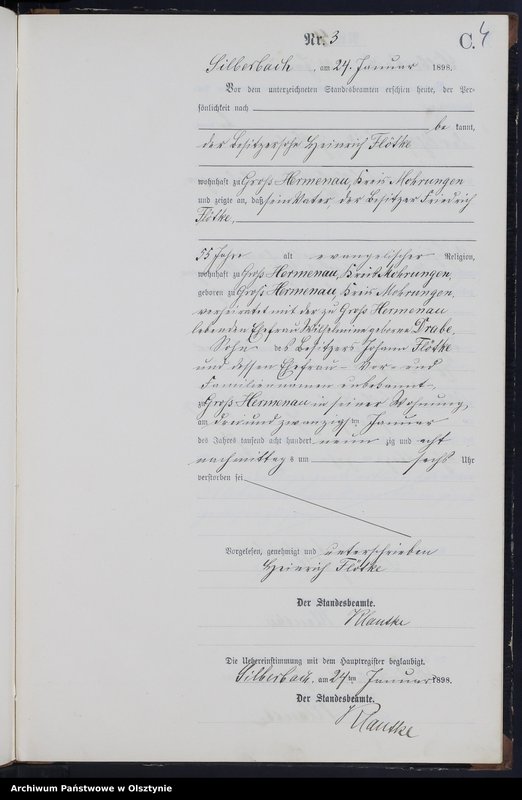 Nr. 3
C.
4
Silberbach, am 24. Januar 1898.
Vor dem unterzeichneten Standesbeamten erschien heute, der Per-
sönlichkeit nach
be kannt,
der Besitzersohn Heinrich Flötke
wohnhaft zu Groß Hermenau, Kreis Mohrungen
und zeigte an, daß sein Vater, der Besitzer Friedrich
Flötke,
55 Jahre alt evangelischer Religion,
wohnhaft zu Groß Hermenau, Kreis Mohrungen,
geboren zu Groß Hermenau, Kreis Mohrungen,
verheiratet mit der zu Groß Hermenau
lebenden Ehefrau Wilhelmine geborene Drabe,
Sohn des Besitzers Johann Flötke
und dessen Ehefrau – Vor- und
Familiennamen unbekannt –,
zu Groß Hermenau in seiner Wohnung,
am drei und zwanzigsten Januar
des Jahres tausend acht hundert neun zig und acht
nachmittags um sechs Uhr
verstorben sei
Vorgelesen, genehmigt und unterschrieben
Heinrich Flötke
Der Standesbeamte.
Die Uebereinstimmung mit dem Hauptregister beglaubigt.
Silberbach, am 24ten Januar 1898.
Der Standesbeamte.
Archiwum Państwowe w Olsztynie